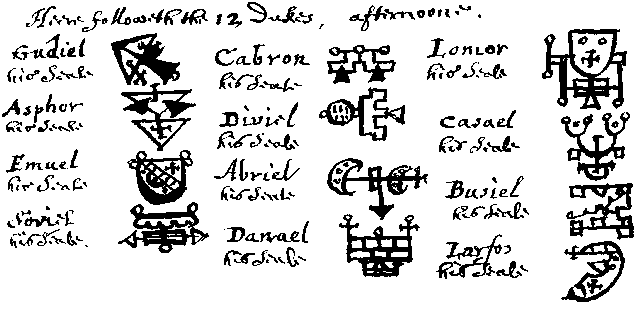 Here followeth the 12 Dukes, afternoone.
Gudiel
his Seale
Asphor
his Seale
Emuel
his Seale
Soviel
his Seale.
Cabron
his Seale
Diviel
his Seale
Abriel
his Seale
Danael
his Seale
Lomor
his Seale
Casael
his Seale
Busiel
his Seale
Larfos
his Seale